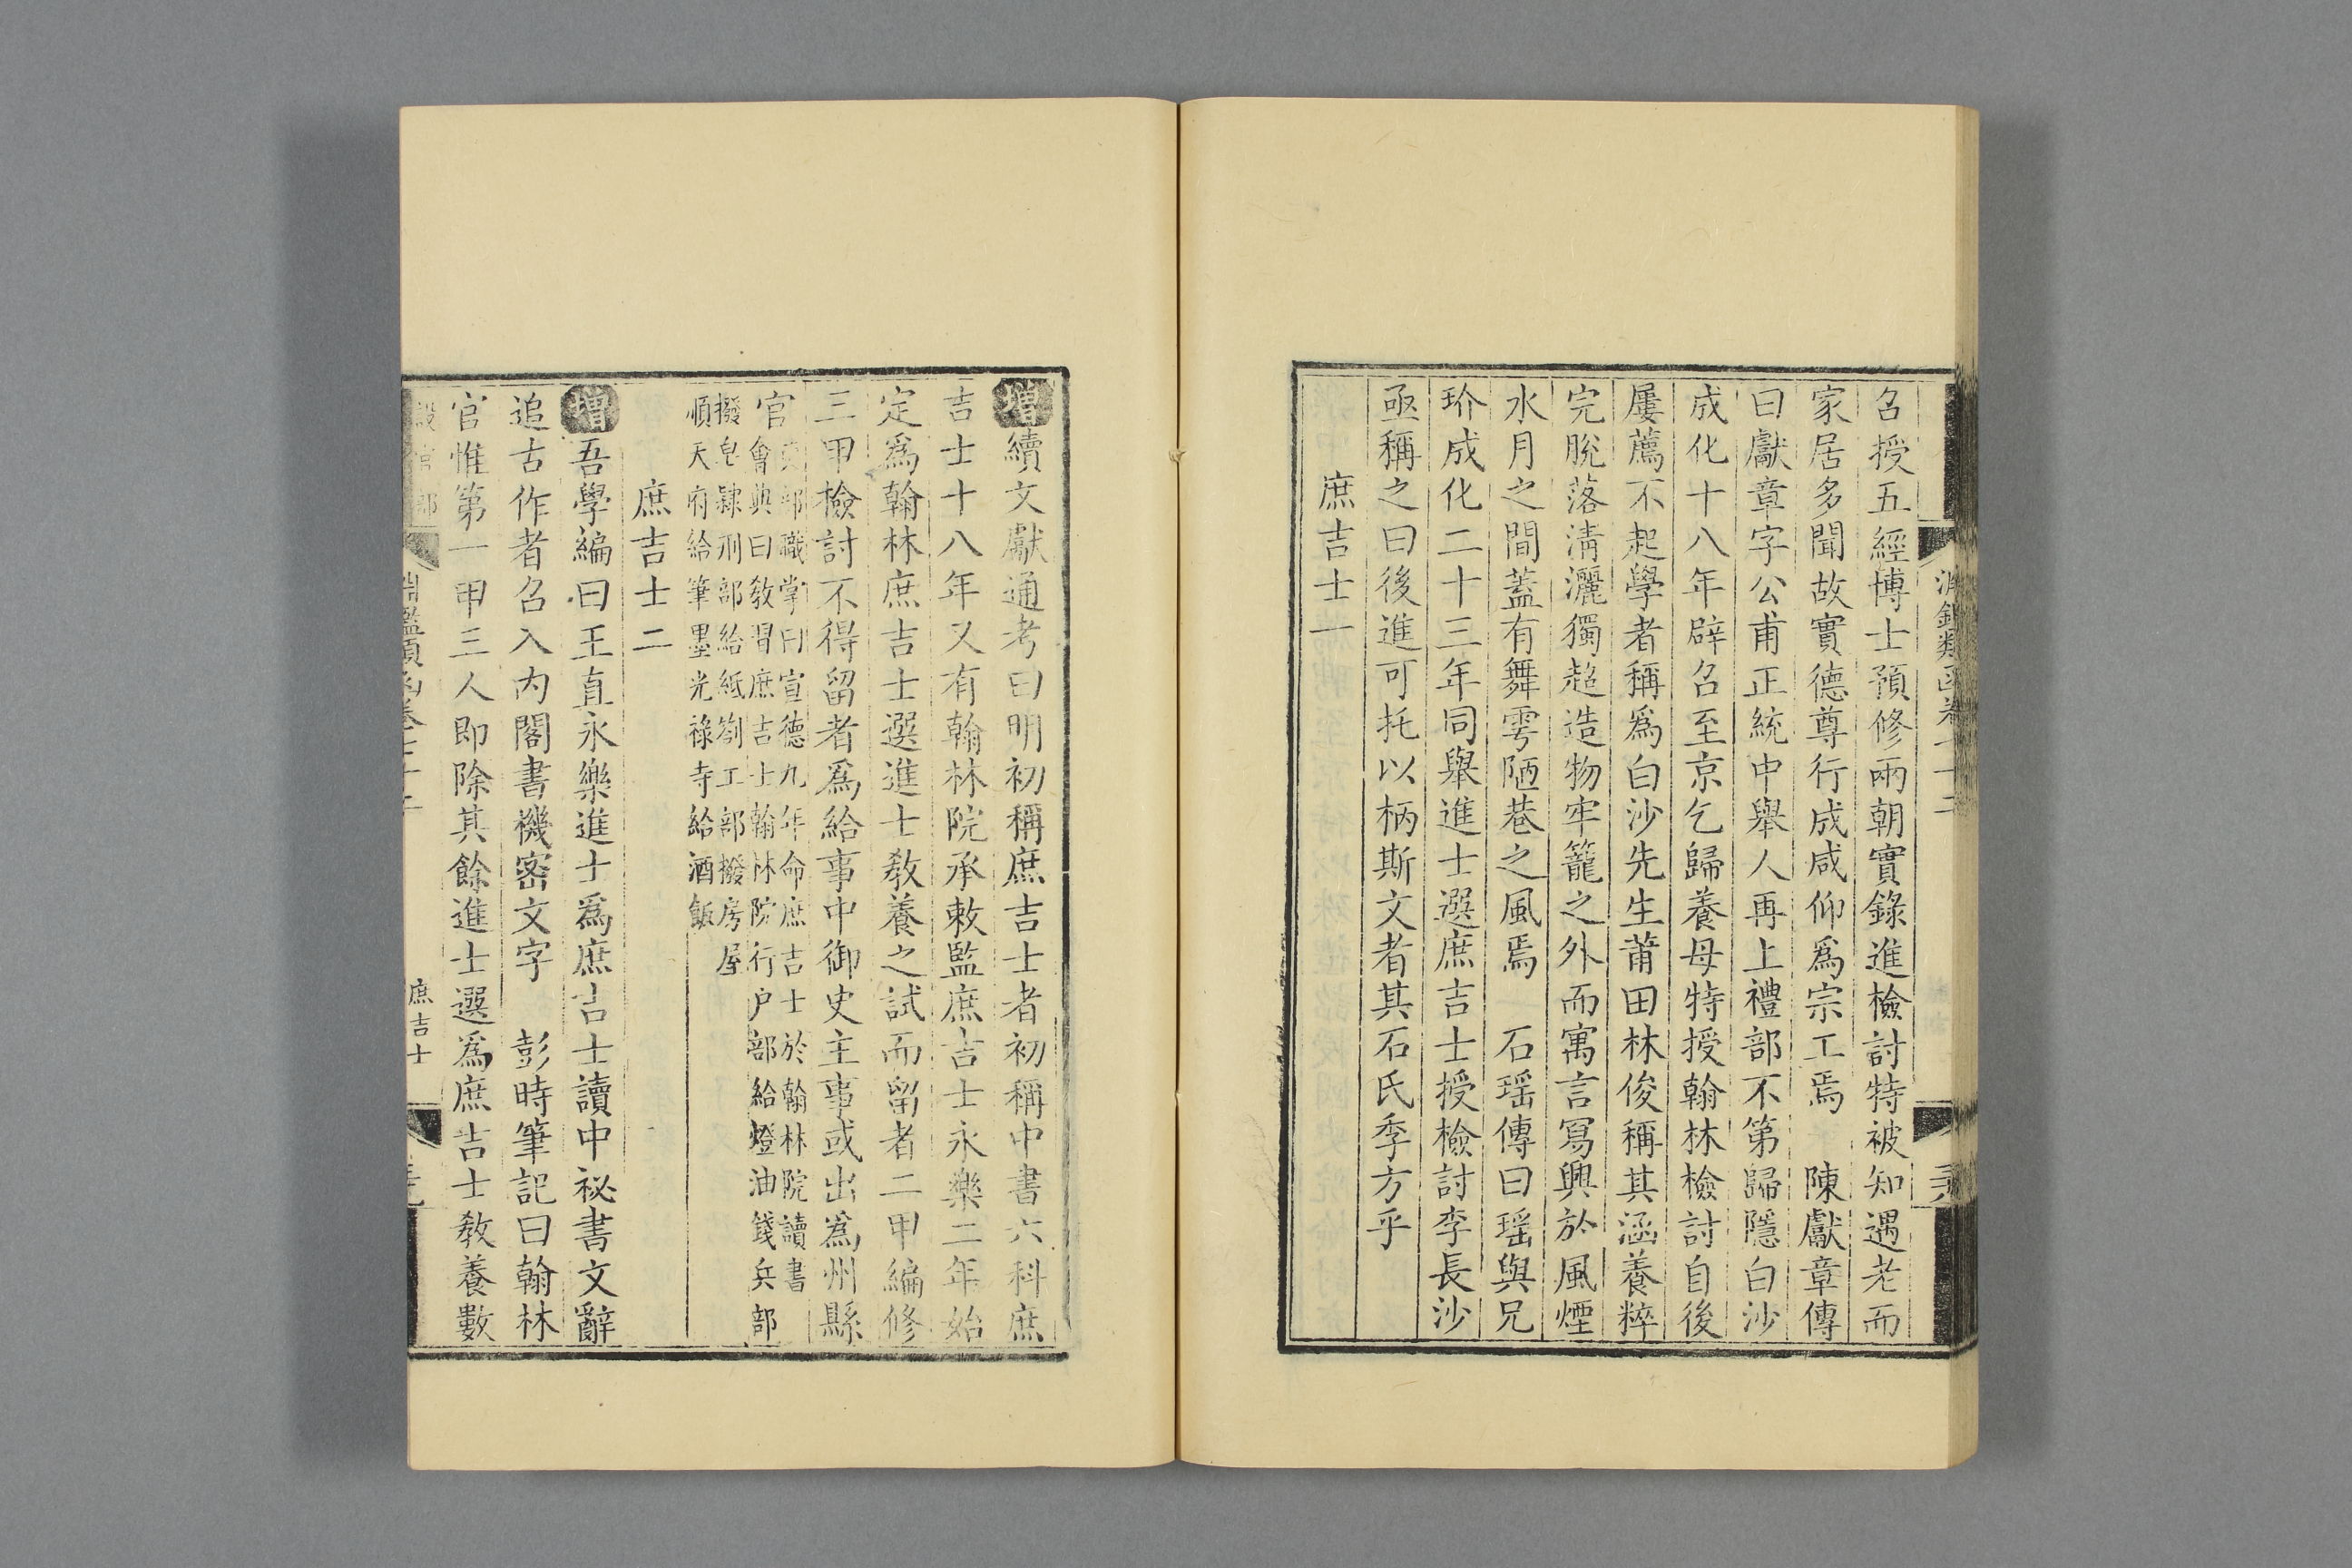 召授五經博士預修兩朝實錄進檢討特被知遇老而
家居多聞故實德尊行成咸仰爲宗工焉　陳獻章傳
曰獻章字公甫正統中舉人再上禮部不第歸隱白沙
成化十八年辟召至京乞歸養母特授翰林檢討自後
屢薦不起學者稱爲白沙先生莆田林俊稱其涵養粹
完脫落清灑獨超造物牢籠之外而寓言寫興於風煙
水月之間蓋有舞雩陋巷之風焉　石瑶傳曰瑶與兄
玠成化二十三年同舉進士選庶吉士授檢討李長沙
亟稱之曰後進可托以柄斯文者其石氏季方乎
庶吉士一
增續文獻通考曰明初稱庶吉士者初稱中書六科庶
吉士十八年又有翰林院承敕監庶吉士永樂二年始
定爲翰林庶吉士選進士教養之試而留者二甲編修
三甲檢討不得留者爲給事中御史主事或出爲州縣
官
吏部職掌曰宣德九年命庶吉士於翰林院讀書
會典曰教習庶吉士翰林院行戶部給燈油錢兵部
撥皂隸刑部給紙劄工部撥房屋
順天府給筆墨光祿寺給酒飯
庶吉士二
增吾學編曰王直永樂進士爲庶吉士讀中祕書文辭
追古作者召入內閣書機密文字　彭時筆記曰翰林
官惟第一甲三人即除其餘進士選爲庶吉士教養數
設官部
淵鑑類函卷七十二
庶吉士